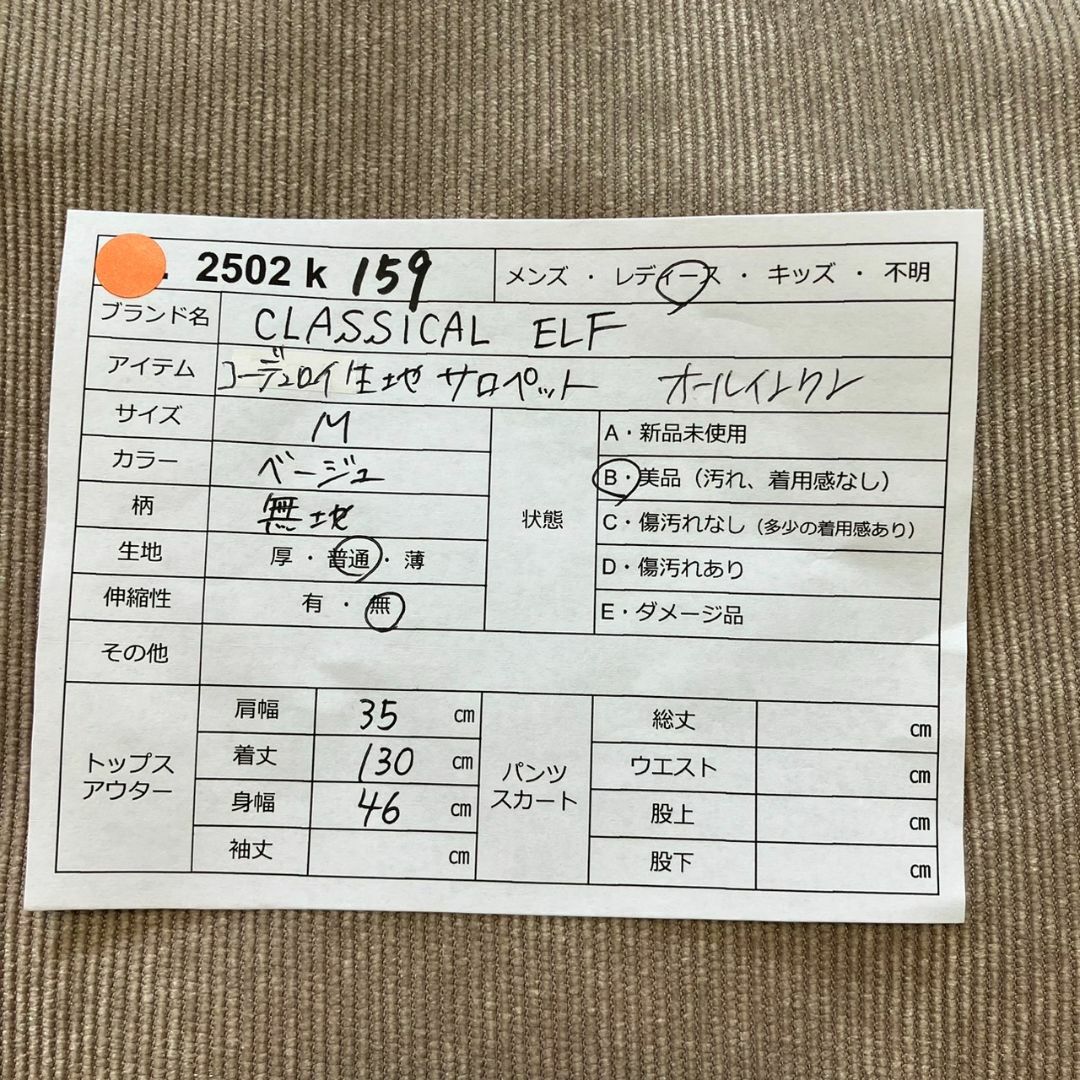 2502 k 159 メンズ ・ レディース ・ キッズ ・ 不明
ブランド名 CLASSICAL ELF
アイテム コーデュロイ生地 サロペット オールインワン
サイズ M
カラー ベージュ
柄 無地
生地 厚 ・ 普通 ・ 薄
伸縮性 有 ・ 無
状態
A・新品未使用
B・美品（汚れ、着用感なし）
C・傷汚れなし（多少の着用感あり）
D・傷汚れあり
E・ダメージ品
その他
トップス
アウター
肩幅 35 ㎝
着丈 130 ㎝
身幅 46 ㎝
袖丈 ㎝
パンツ
スカート
総丈 ㎝
ウエスト ㎝
股上 ㎝
股下 ㎝